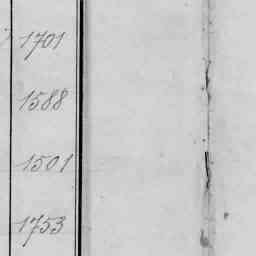 1701
1588
1501
1753